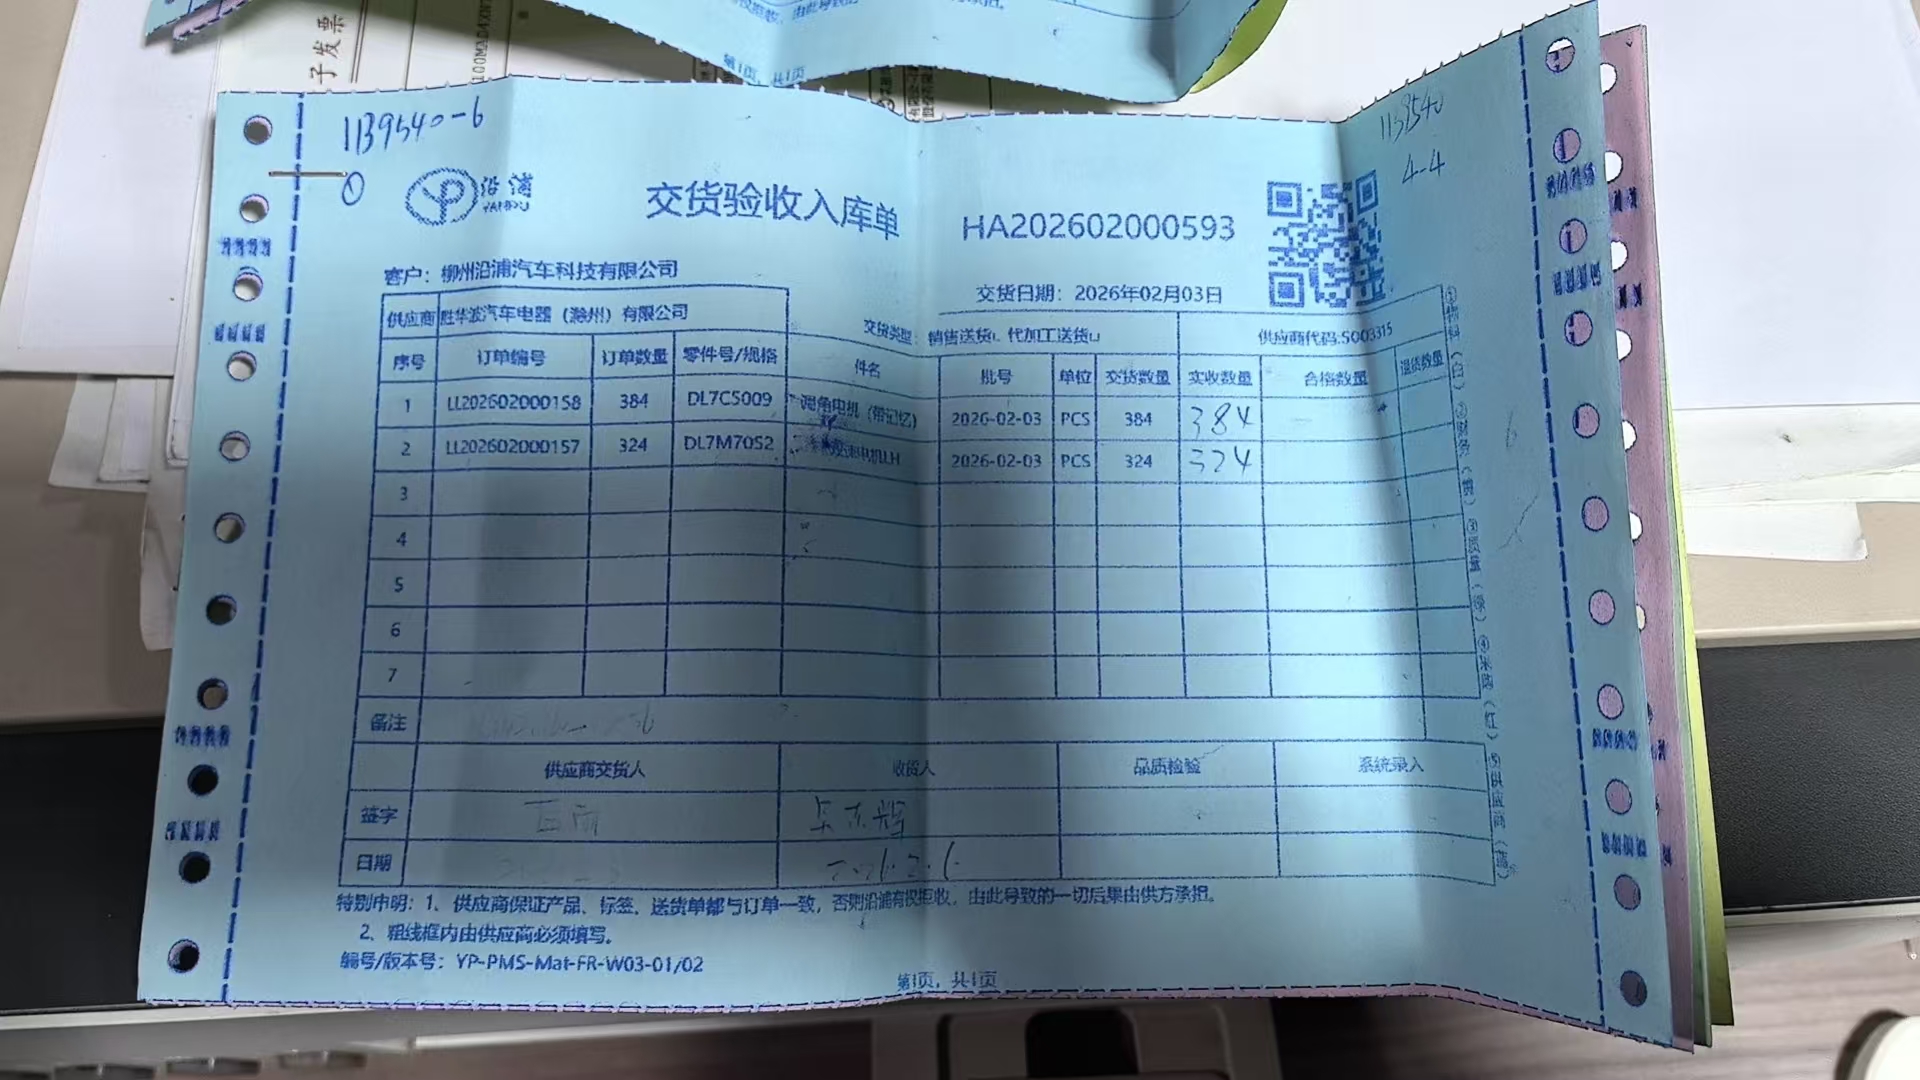 子发票
第1页，共1页
1139540-6
①
1139540
4-4
YP 沿浦
YANPU
交货验收入库单
HA202602000593
客户：柳州沿浦汽车科技有限公司
交货日期：2026年02月03日
供应商 胜华波汽车电器（滁州）有限公司
交货类型：销售送货 代加工送货
供应商代码:S003315
序号 订单编号 订单数量 零件号/规格 件名 批号 单位 交货数量 实收数量 合格数量 退货数量
1 LL202602000158 384 DL7C5009 调角电机（带记忆） 2026-02-03 PCS 384 384
2 LL202602000157 324 DL7M70S2 电机LH 2026-02-03 PCS 324 324
3
4
5
6
7
备注
供应商交货人 收货人 品质检验 系统录入
签字
日期 2026.2.6
特别申明：1、供应商保证产品、标签、送货单都与订单一致，否则沿浦有权拒收，由此导致的一切后果由供方承担。
2、粗线框内由供应商必须填写。
编号/版本号：YP-PMS-Mat-FR-W03-01/02
第1页，共1页